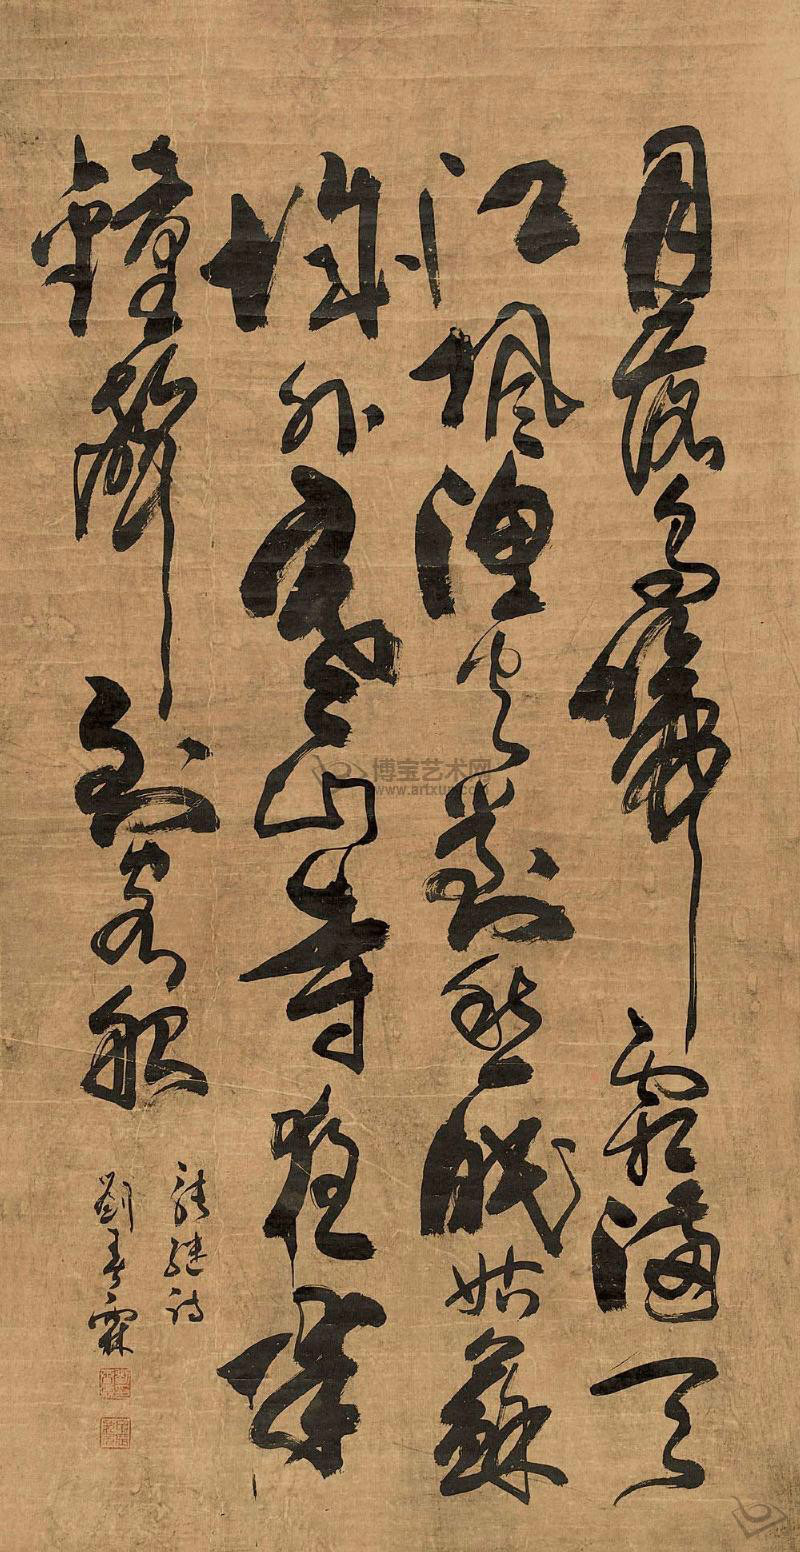 月落烏啼霜滿天
江楓漁火對愁眠姑蘇
城外寒山寺夜半
鐘聲到客船
張繼詩
劉春霖
博宝艺术网
www.artxun.com